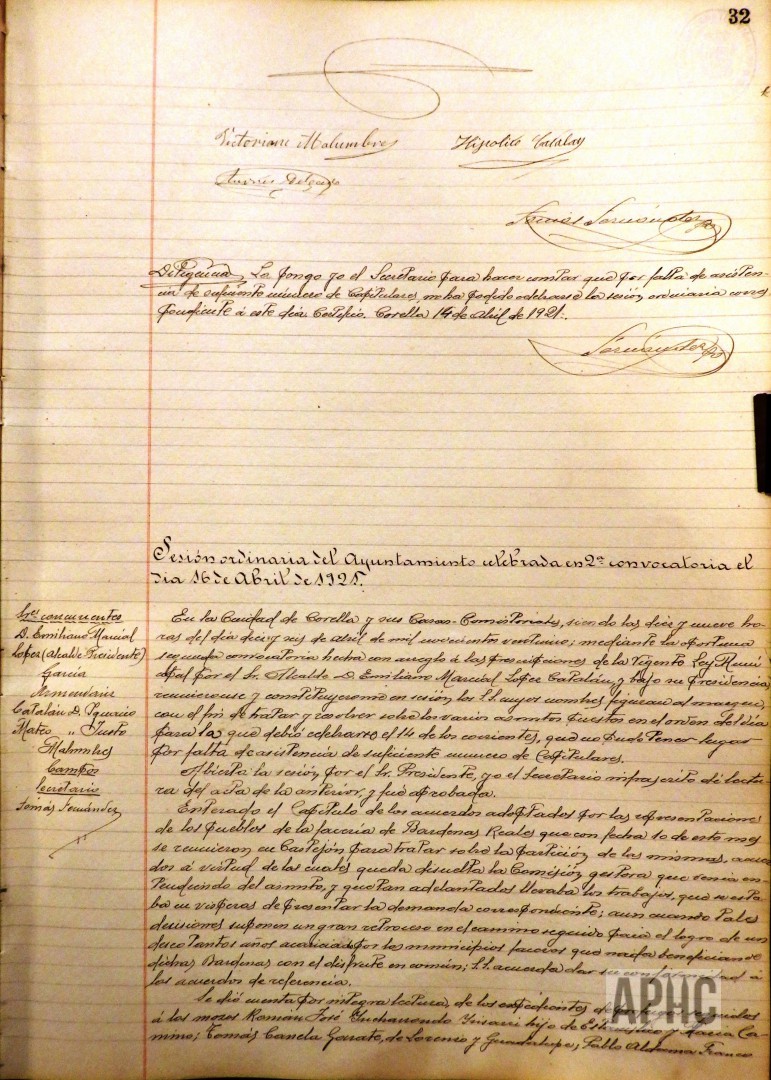 32
Victoriano Malumbres Hipolito Catalan
Tomás Fernández
Diligencia, La pongo yo el Secretario para hacer constar que por falta de asisten-
cia de suficiente número de Capitulares, no ha podido celebrarse la sesión ordinaria corres
pondiente á este día. Certifico. Corella 14 de Abril de 1921.
Fernández
Sesión ordinaria del Ayuntamiento celebrada en 2ª convocatoria el
día 16 de Abril de 1921.
Sres concurrentes
D. Emiliano Marcial
Lopez (Alcalde Presidente)
García
Armendariz
Catalán D. Ignacio
Mateo " Justo
Malumbres
Campos
Secretario
Tomás Fernández
En la Ciudad de Corella y sus Casas-Consistoriales, siendo las diez y nueve ho
ras del día diez y seis de Abril de mil novecientos veintiuno; mediante la oportuna
segunda convocatoria hecha con arreglo á las prescripciones de la vigente Ley Muni
cipal por el Sr. Alcalde D. Emiliano Marcial Lopez Catalán, y bajo su presidencia,
reunieronse y constituyeronse en sesión los S.S. cuyos nombres figuran al margen,
con el fin de tratar y resolver sobre los varios asuntos puestos en el orden del día
para la que debió celebrarse el 14 de los corrientes, que no pudo tener lugar
por falta de asistencia de suficiente numero de Capitulares.
Abierta la sesión por el Sr. Presidente, yo el Secretario infrascrito dí lectu
ra del acta de la anterior, y fué aprobada.
Enterado el Capítulo de los acuerdos adoptados por las representaciones
de los pueblos de la facería de Bardenas Reales que con fecha 10 de este mes
se reunieron en Castejón para tratar sobre la partición de las mismas, acuer
dos á virtud de los cuales queda disuelta la Comisión gestora que venia en-
tendiendo del asunto, y que tan adelantados llevaba los trabajos, que se esta
ba en visperas de presentar la demanda correspondiente; aun cuando tales
decisiones suponen un gran retroceso en el camino seguido para el logro de un
deseo tantos años acariciado por los municipios faceros que nada benefician de
dichas Bardenas con el disfrute en común; S.S. acuerda dar su conformidad á
los acuerdos de referencia.
Se dió cuenta por integra lectura, de los expedientes de seguidos
á los mozos Román José hijo de y María Ca-
mino; Tomás Canela Garrate, de Lorenzo y Guadalupe; Pablo Aldama Franco
APHC